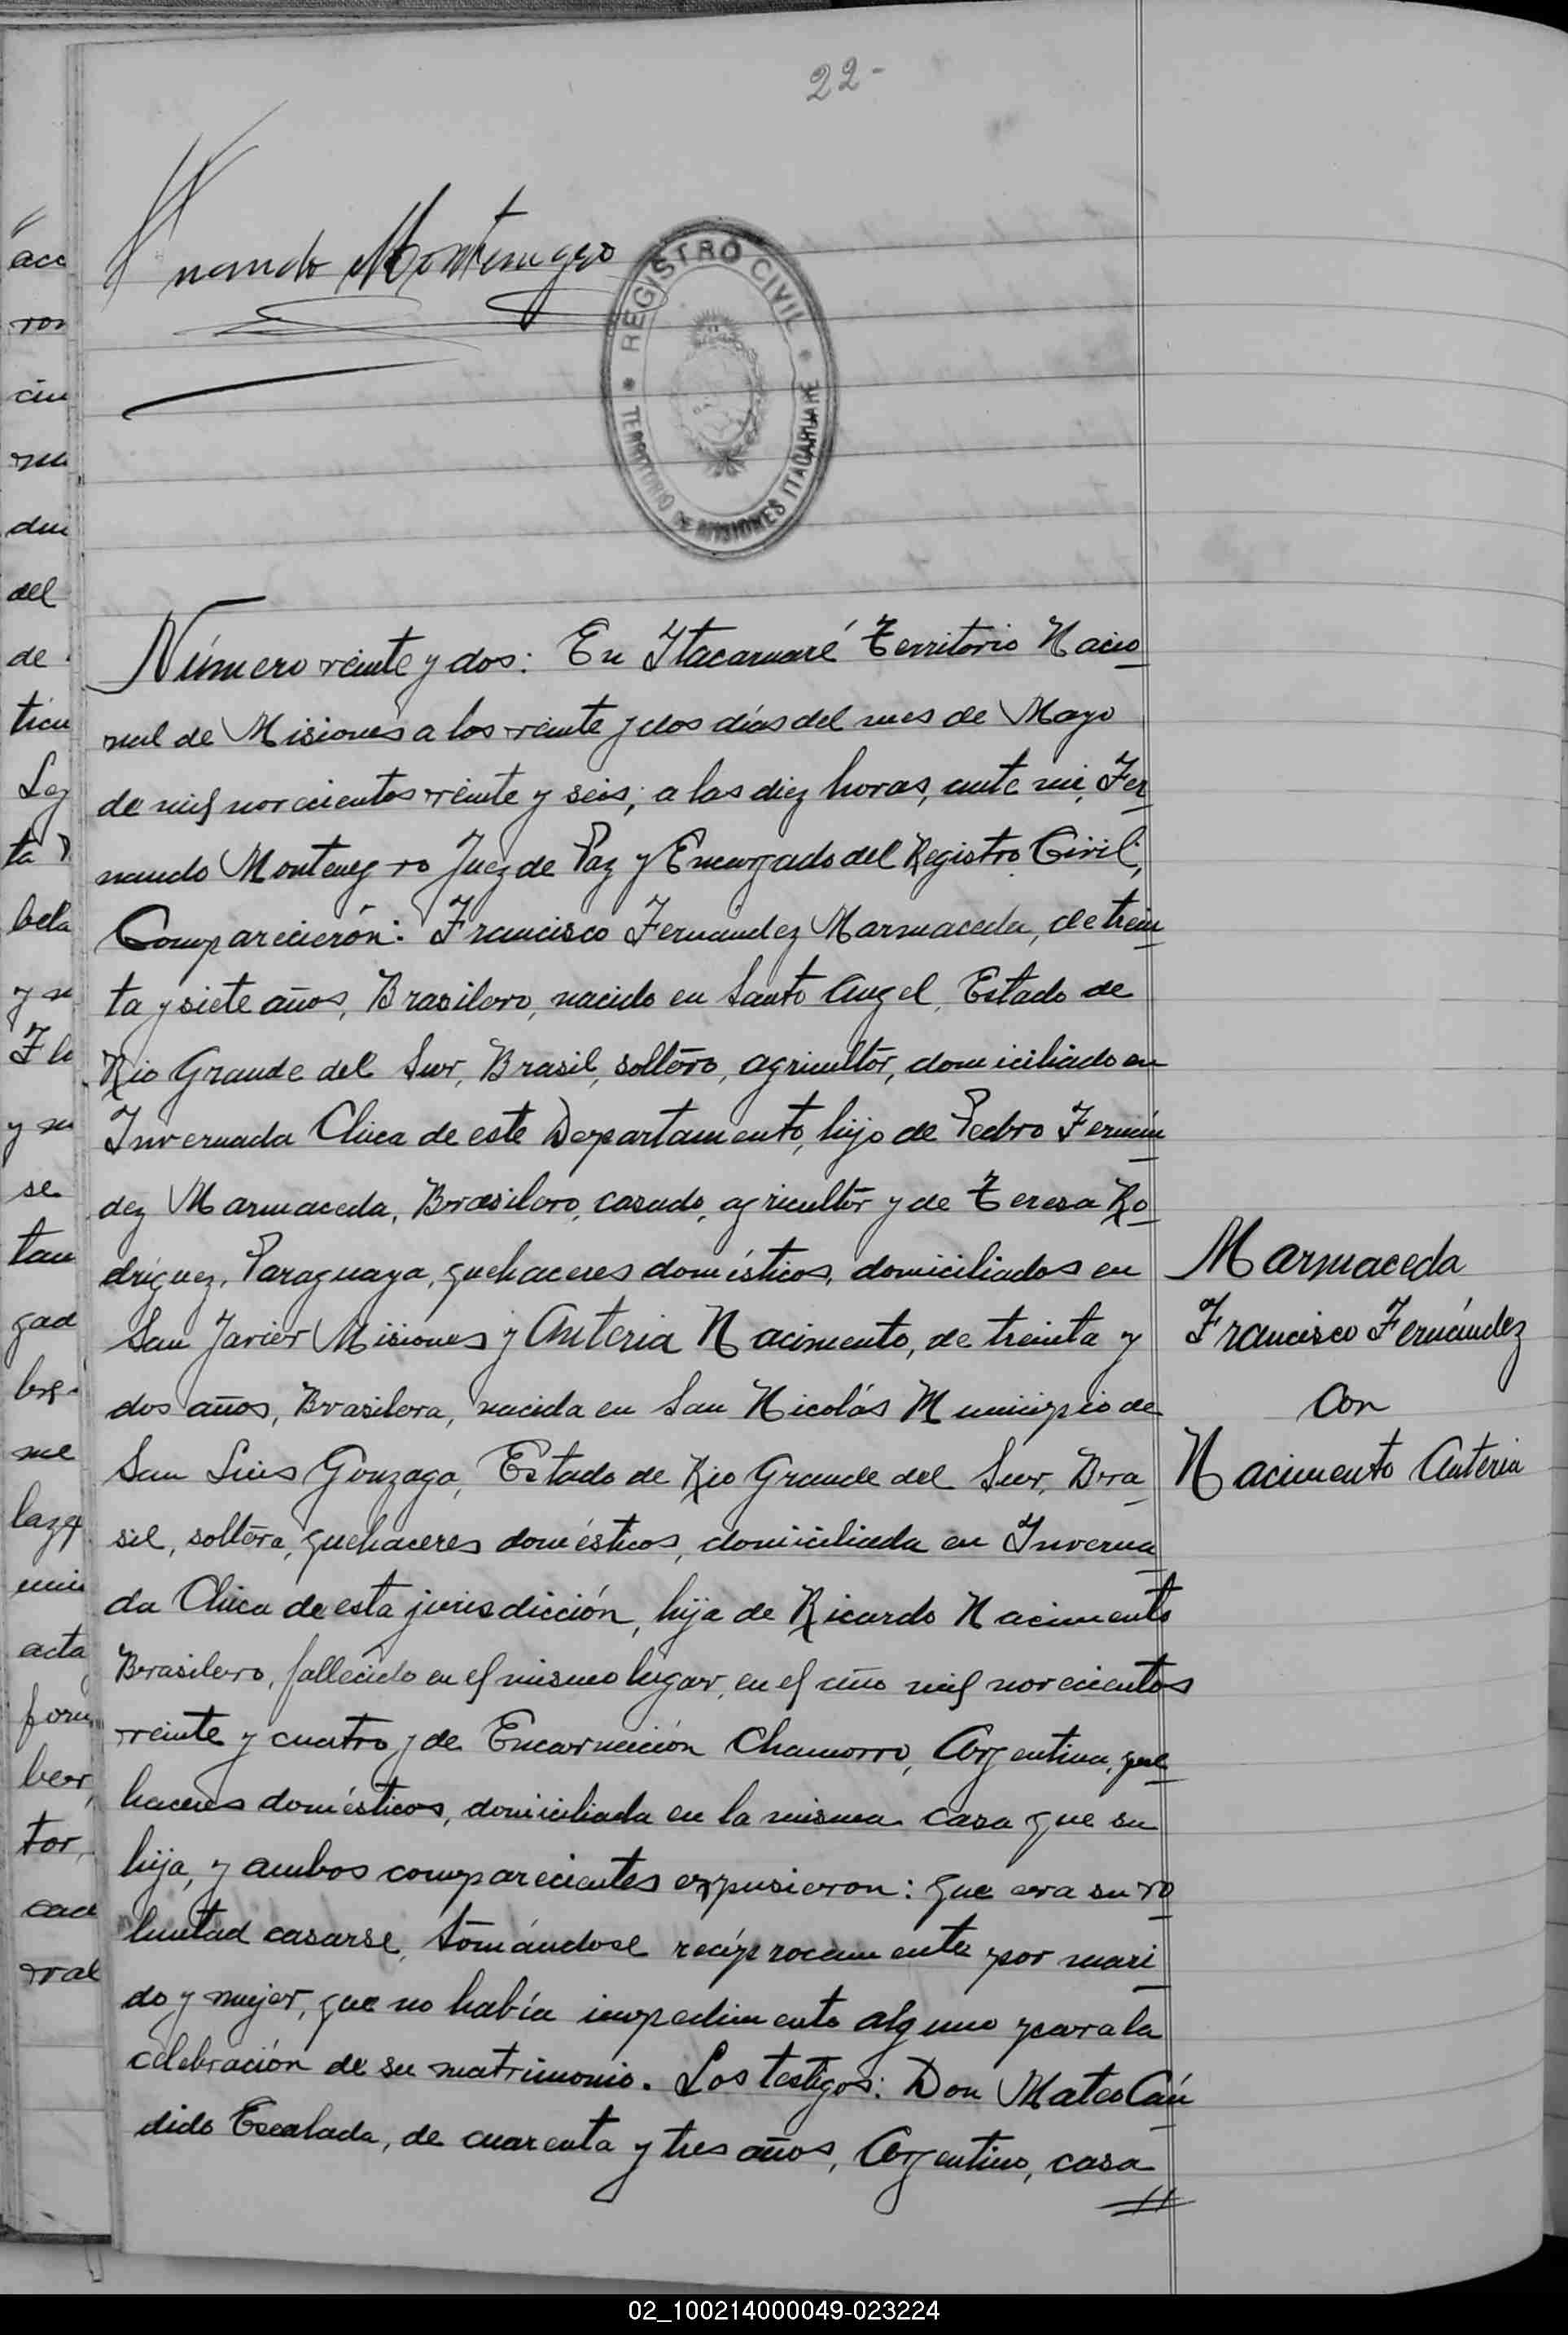 22-
nando Montenegro
REGISTRO CIVIL
TERRITORIO DE MISIONES ITACARUARE
Número veinte y dos: En Itacaruaré Territorio Nacio
nal de Misiones a los veinte y dos días del mes de Mayo
de mil novecientos veinte y seis, a las diez horas, ante mi, Fer
nando Montenegro Juez de Paz y Encargado del Registro Civil,
Comparecierón: Francisco Fernández Marmaceda, de trein
ta y siete años, Brasilero, nacido en Santo Angel, Estado de
Rio Grande del Sur, Brasil, soltero, agricultor, domiciliado en
Invernada Chica de este Departamento, hijo de Pedro Fernán
dez Marmaceda, Brasilero, casado, agricultor y de Teresa Ro
dríguez, Paraguaya, quehaceres domésticos, domiciliados en
San Javier Misiones y Anteria Nacimento, de treinta y
dos años, Brasilera, nacida en San Nicolás Municipio de
San Luis Gonzaga, Estado de Rio Grande del Sur, Bra
sil, soltera, quehaceres domésticos, domiciliada en Inverna
da Chica de esta jurisdicción, hija de Ricardo Nacimento
Brasilero, fallecido en el mismo lugar, en el año mil novecientos
veinte y cuatro y de Encarnación Chamorro, Argentina, que
haceres domésticos, domiciliada en la misma casa que su
hija, y ambos comparecientes expusieron: que era su vo
luntad casarse, tomándose recíprocamente por mari
do y mujer, que no había impedimento alguno para la
celebración de su matrimonio. Los testigos: Don Mateo Cán
dido Escalada, de cuarenta y tres años, Argentino, casa
Marmaceda
Francisco Fernández
Con
Nacimento Anteria
acc
ron
cin
du
del
de
ticu
Ley
ta
bela
y
Fl
y su
se
tan
gad
me
acta
form
ber,
tor,
cad
ral
02_100214000049-023224